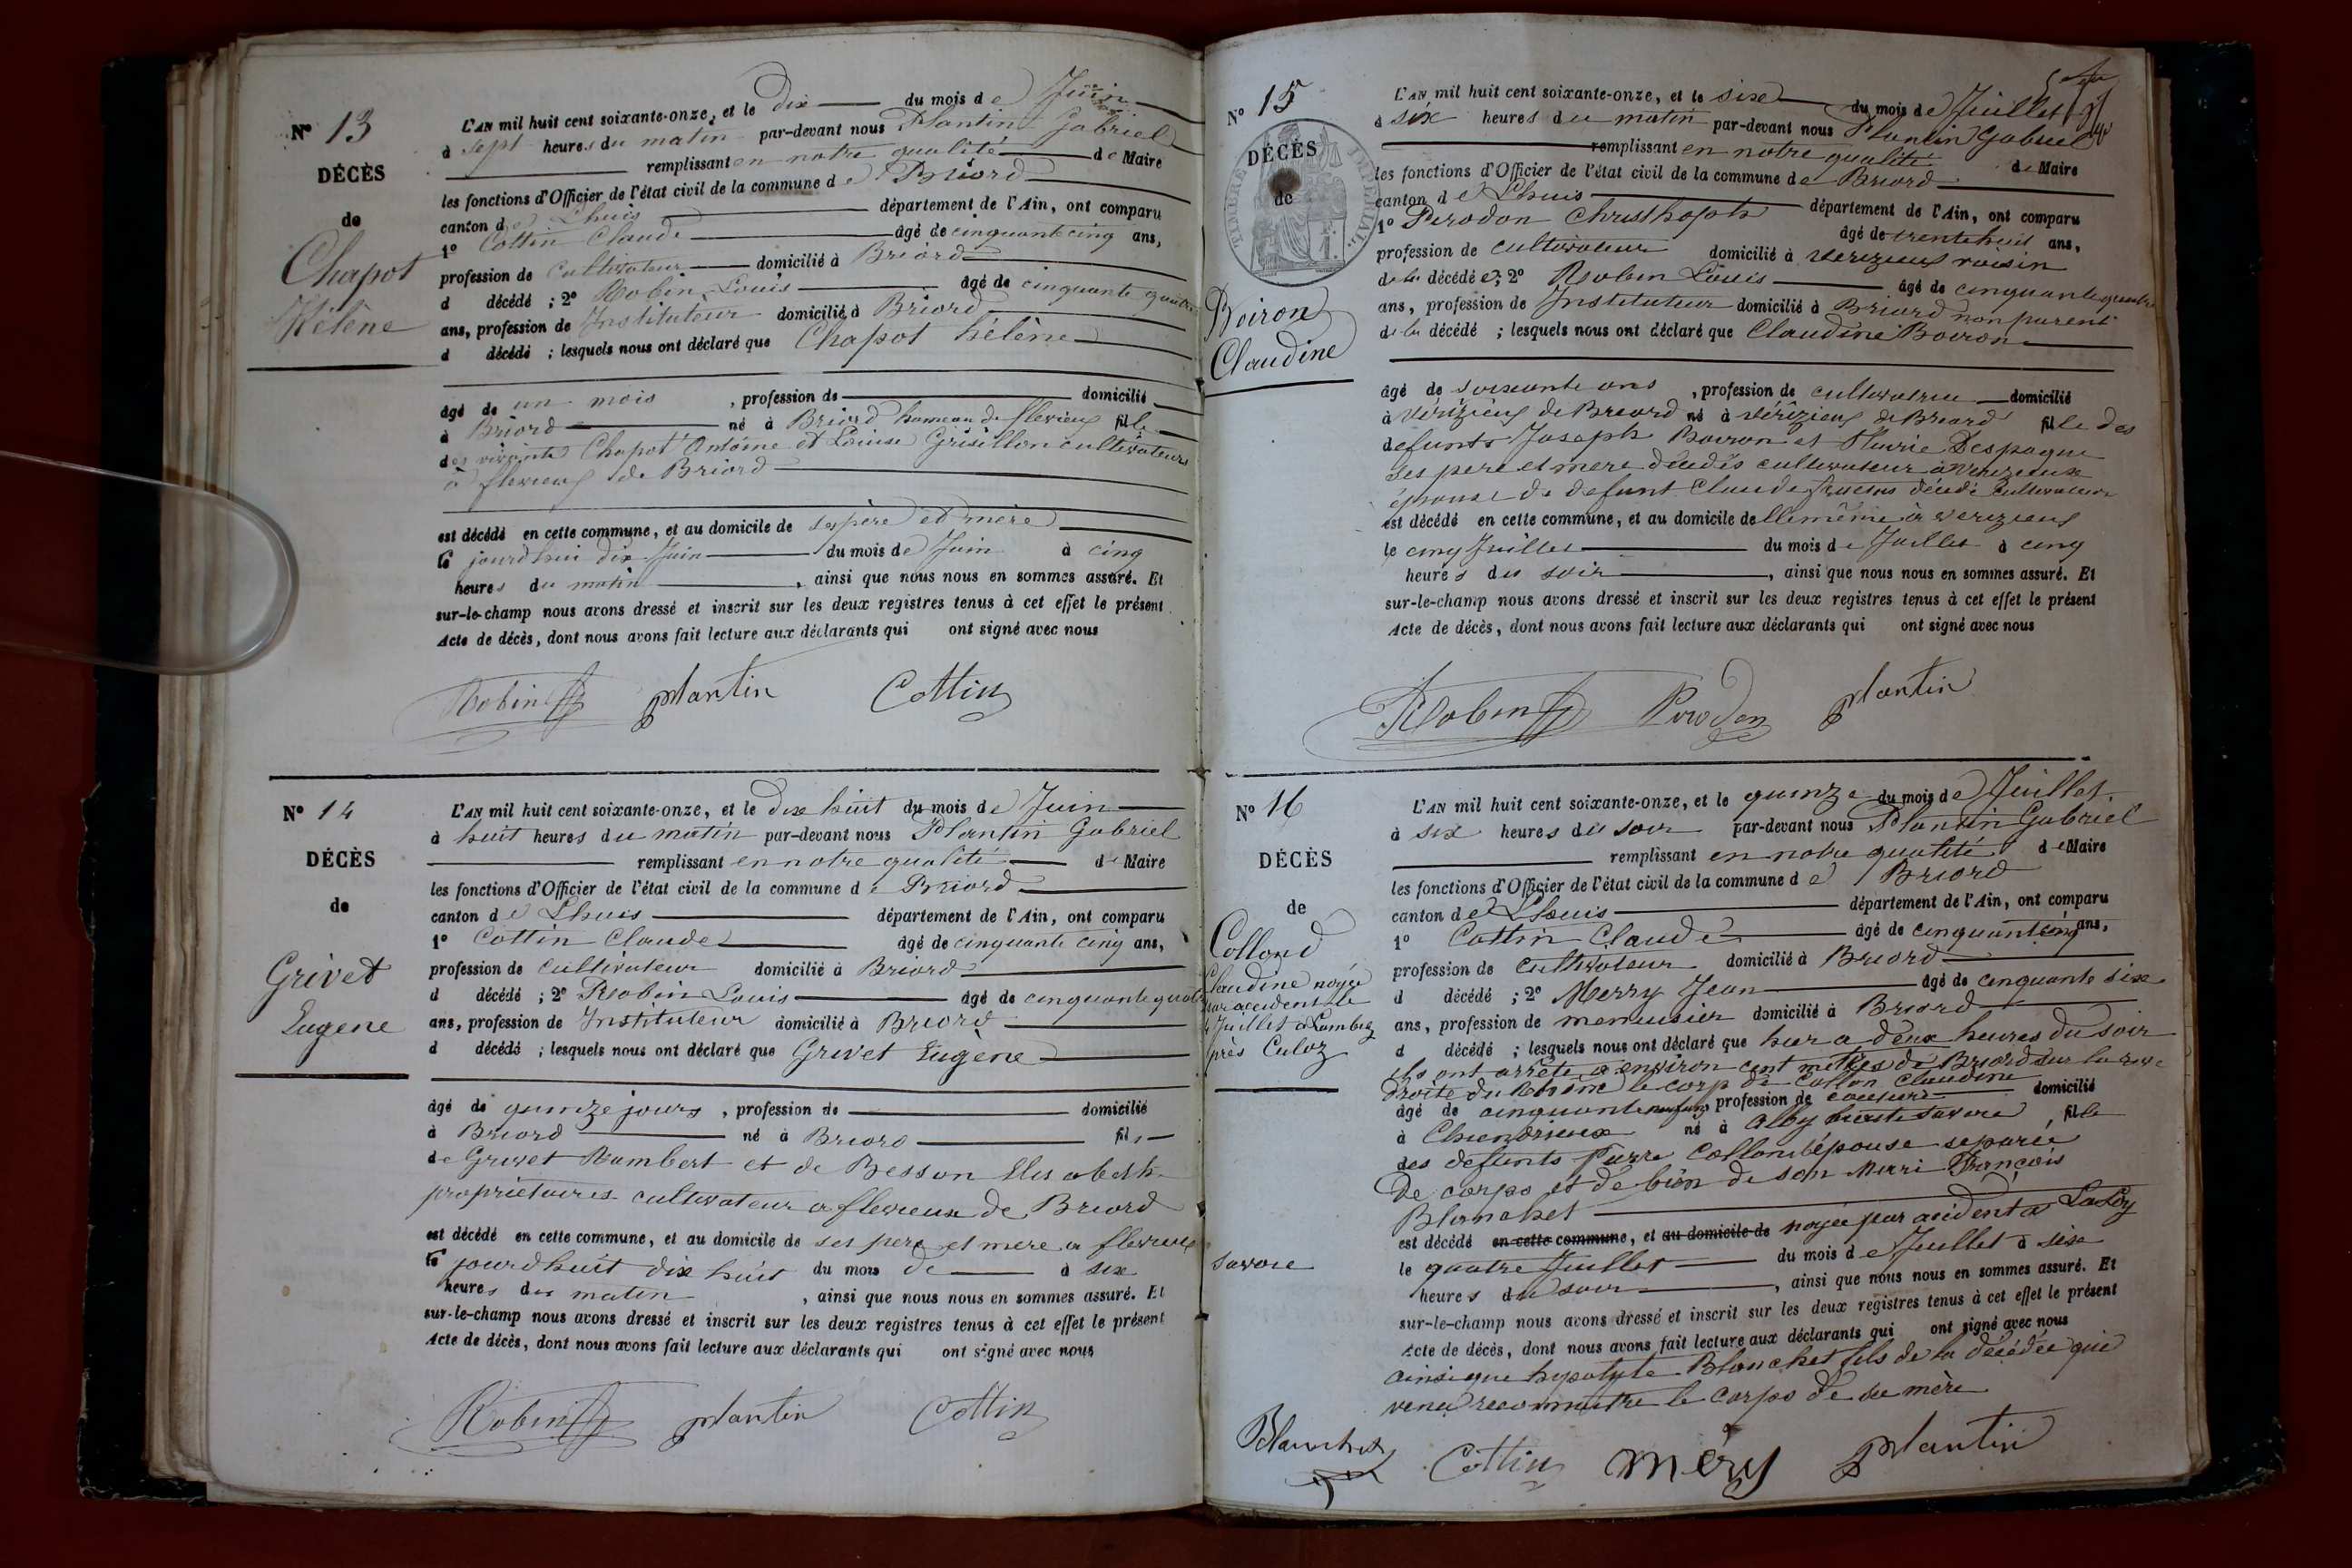 Nº 13
DÉCÈS
de
Chapot
Hélène
L'AN mil huit cent soixante-onze, et le dix du mois de Juin
à sept heures du matin par-devant nous Plantin Gabriel
remplissant en notre qualité de Maire
les fonctions d'Officier de l'état civil de la commune de Briord
canton de Lhuis département de l'Ain, ont comparu
1º Cottin Claude âgé de cinquante cinq ans,
profession de Cultivateur domicilié à Briord
d décédé ; 2º Robin Louis âgé de cinquante quatre
ans, profession de Instituteur domicilié à Briord
d décédé ; lesquels nous ont déclaré que Chapot hélène
âgé de un mois , profession de domicilié
à Briord né à Briord hameau de flevieux fille
des vivants Chapot Antoine et Louise Grisillon cultivateurs
à flevieux de Briord
est décédé en cette commune, et au domicile de ses père et mère
le jourdhui dix Juin du mois de Juin à cinq
heures du matin , ainsi que nous nous en sommes assuré. Et
sur-le-champ nous avons dressé et inscrit sur les deux registres tenus à cet effet le présent
Acte de décès, dont nous avons fait lecture aux déclarants qui ont signé avec nous
Robin plantin Cottin
Nº 14
DÉCÈS
de
Grivet
Eugene
L'AN mil huit cent soixante-onze, et le dix huit du mois de Juin
à huit heures du matin par-devant nous Plantin Gabriel
remplissant en notre qualité de Maire
les fonctions d'Officier de l'état civil de la commune de Briord
canton de Lhuis département de l'Ain, ont comparu
1º Cottin Claude âgé de cinquante cinq ans,
profession de cultivateur domicilié à Briord
d décédé ; 2º Robin Louis âgé de cinquante quatre
ans, profession de Instituteur domicilié à Briord
d décédé ; lesquels nous ont déclaré que Grivet Eugène
âgé de quinze jours , profession de domicilié
à Briord né à Briord fils
de Grivet Humbert et de Besson Elisabeth
propriétaires cultivateur a flevieux de Briord
est décédé en cette commune, et au domicile de ses pere et mere a flevieux
le jourdhuit dix huit du mois de à six
heures du matin , ainsi que nous nous en sommes assuré. Et
sur-le-champ nous avons dressé et inscrit sur les deux registres tenus à cet effet le présent
Acte de décès, dont nous avons fait lecture aux déclarants qui ont signé avec nous
Robin plantin Cottin
Nº 15
DÉCÈS
de
TIMBRE IMPÉRIAL
Boiron
Claudine
L'AN mil huit cent soixante-onze, et le six du mois de Juillet
à six heures du matin par-devant nous Plantin Gabriel
remplissant en notre qualité de Maire
les fonctions d'Officier de l'état civil de la commune de Briord
canton de Lhuis département de l'Ain, ont comparu
1º Perodon Christhoph âgé de trente huit ans,
profession de cultivateur domicilié à Verizieux voisin
de la décédée ; 2º Robin Louis âgé de cinquante quatre
ans, profession de Instituteur domicilié à Briord non parent
de la décédé ; lesquels nous ont déclaré que Claudine Boiron
âgé de soixante ans , profession de cultivatrice domicilié
à Vérizieux de Briord né à Vérizieux de Briord fille des
defunts Joseph Boiron et Fleurie Despagne
ses pere et mere décédés cultivateur a Verizieux
épouse de defunt Claude décédé Cultivateur
est décédé en cette commune, et au domicile dellemême à verizieux
le cinq Juillet du mois de Juillet à cinq
heures du soir , ainsi que nous nous en sommes assuré. Et
sur-le-champ nous avons dressé et inscrit sur les deux registres tenus à cet effet le présent
Acte de décès, dont nous avons fait lecture aux déclarants qui ont signé avec nous
Robin Perodon plantin
Nº 16
DÉCÈS
de
Collond
Claudine noyée
par accident le
4 Juillet a
près Culoz
savoie
L'AN mil huit cent soixante-onze, et le quinze du mois de Juillet
à six heures du soir par-devant nous Plantin Gabriel
remplissant en notre qualité de Maire
les fonctions d'Officier de l'état civil de la commune de Briord
canton de Lhuis département de l'Ain, ont comparu
1º Cottin Claude âgé de cinquante cinq ans,
profession de Cultivateur domicilié à Briord
d décédé ; 2º Merry Jean âgé de cinquante six
ans, profession de menuisier domicilié à Briord
d décédé ; lesquels nous ont déclaré que hier a deux heures du soir
ils ont arrêté a environ cent mètres de Briord sur la rive
droite du Rhône le corp de Collon Claudine
âgé de cinquante neuf ans profession de domicilié
à Chindrieux né à Alby haute savoie fille
des defunts Pierre Collond épouse separée
de corps et de bien de son Marri François
Blanchet
est décédé en cette commune, et au domicile de noyée par acident a
le quatre Juillet du mois de Juillet à six
heures du soir , ainsi que nous nous en sommes assuré. Et
sur-le-champ nous avons dressé et inscrit sur les deux registres tenus à cet effet le présent
Acte de décès, dont nous avons fait lecture aux déclarants qui ont signé avec nous
ainsi que hypolyte Blanchet fils de la décédée qui
venu reconnaitre le corps de sa mère
Blanchet Cottin méry plantin